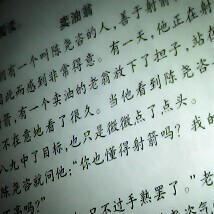 卖油翁
有一个叫陈尧咨的人，善于射箭
因此而感到非常得意。有一天，他正在射
箭，有一个卖油的老翁放下了担子，站在
不在意地看了很久。当他看到陈尧咨
八九中了目标，也只是微微点了点头。
陈尧咨就问他：“你也懂得射箭吗？我的
只不过手熟罢了。”老